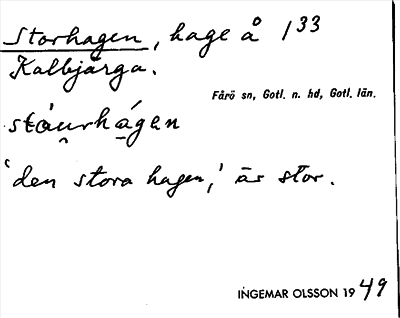 Storhagen, hage å 1 33
Kalbjärga.
Fårö sn, Gotl. n. hd, Gotl. län.
stáu̯rhá̱gen
'den stora hagen,' är stor.
INGEMAR OLSSON 19 49